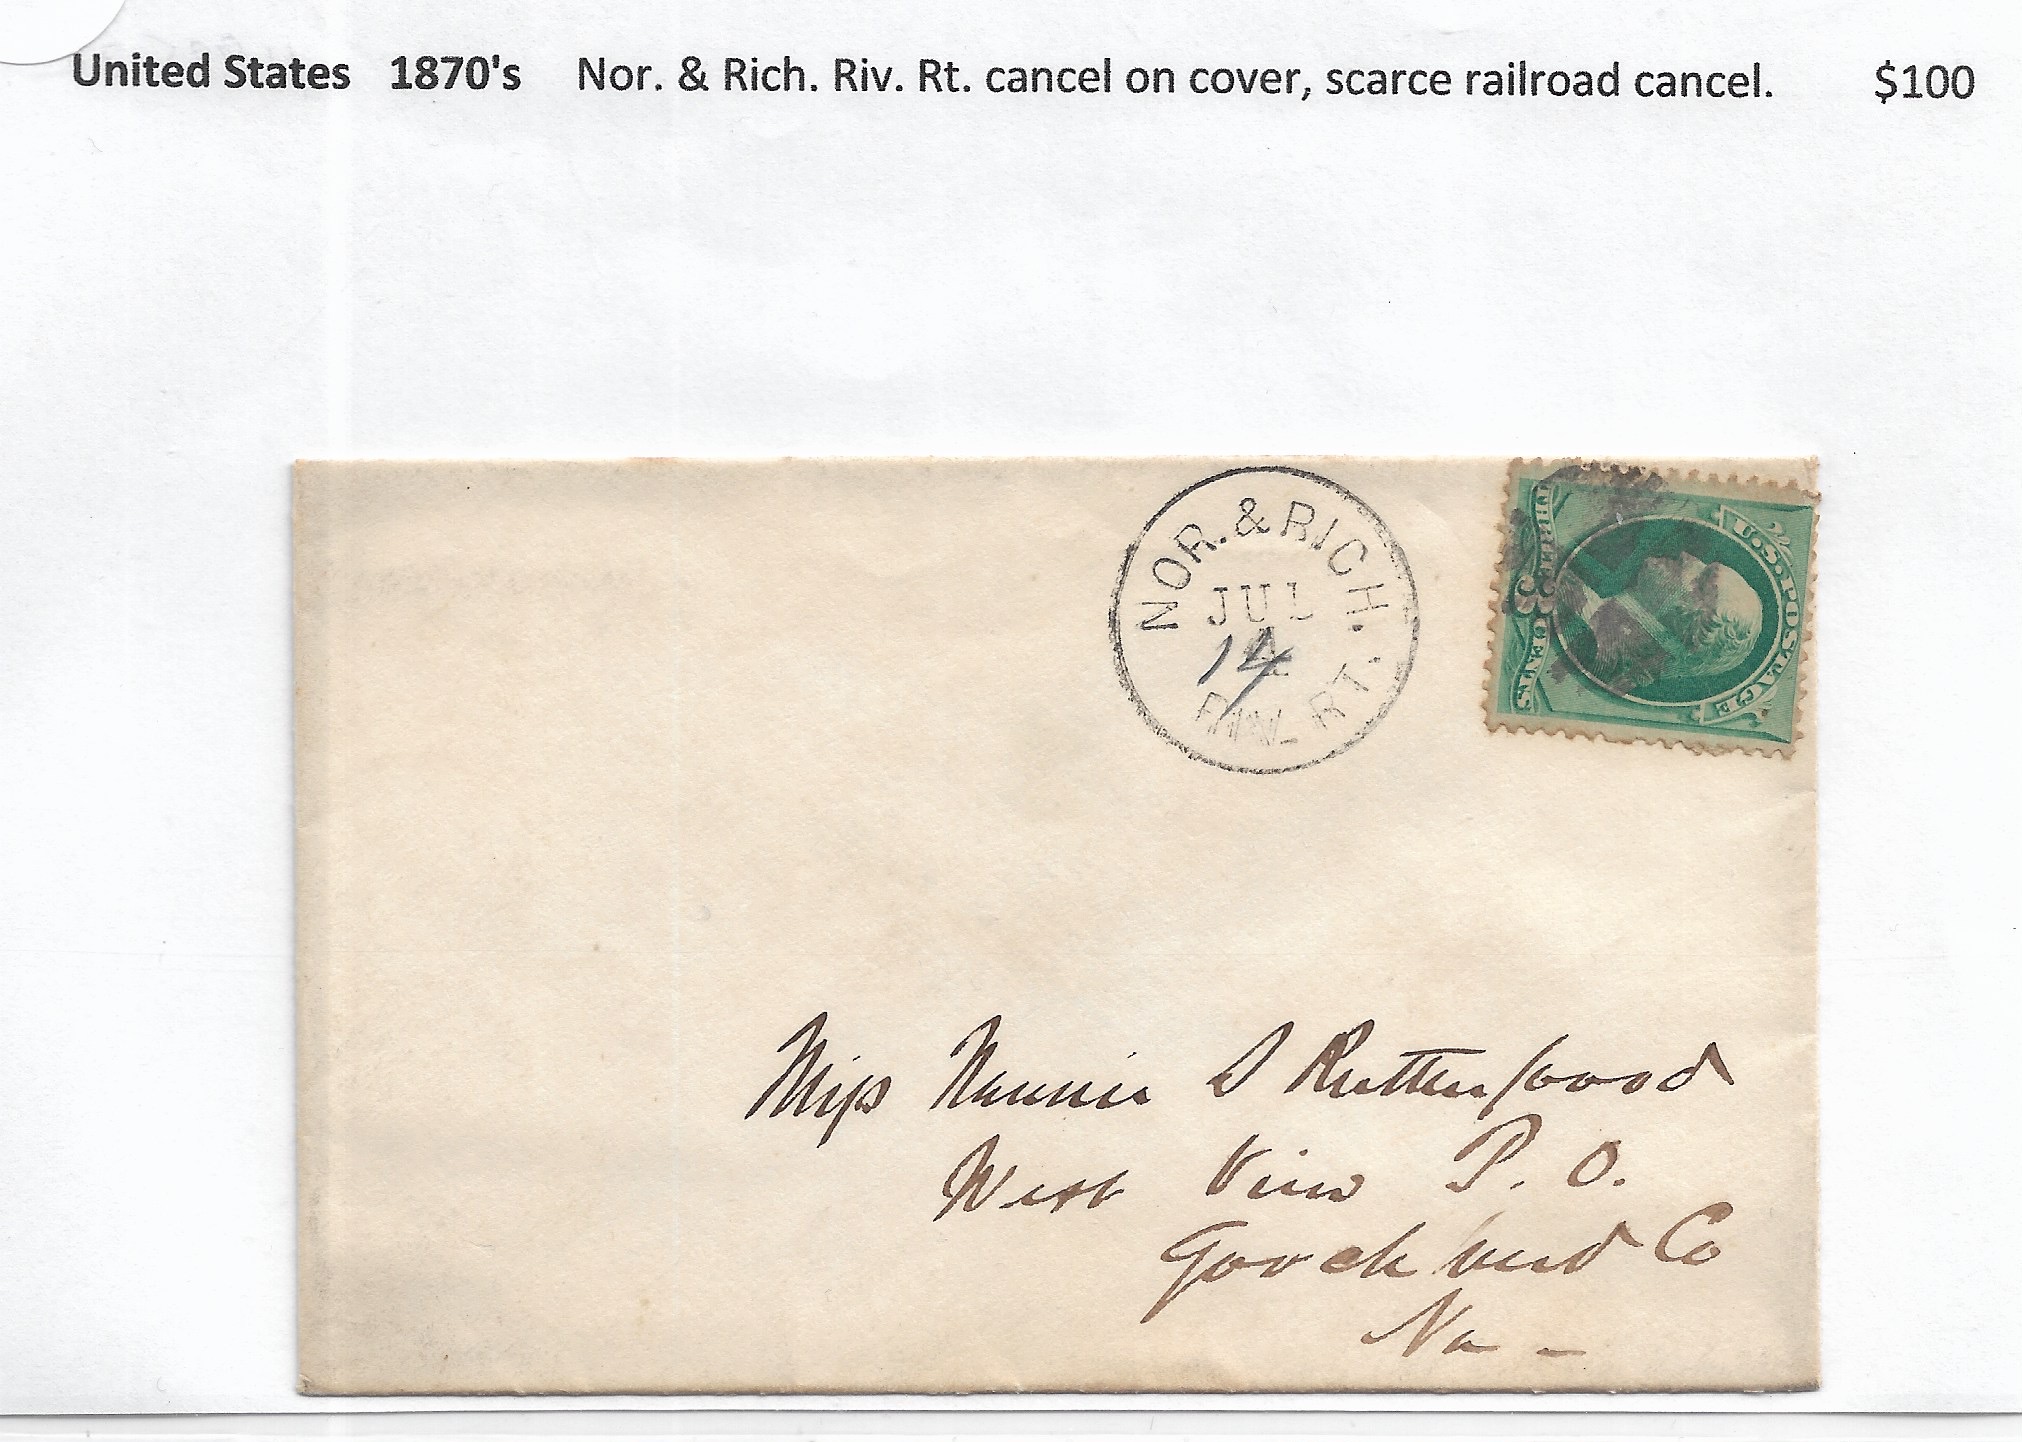 United States 1870's Nor. & Rich. Riv. Rt. cancel on cover, scarce railroad cancel. $100
NOR. & RICH.
JUL
14
RIV. RT.
U.S. POSTAGE
THREE 3 CENTS
Miss Nannie S
West View P. O.
Goochland Co
Va -